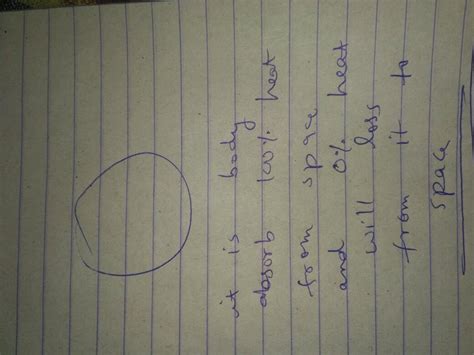 it is body
absorb 100% heat
from space
and 0% heat
will loss
from it to
space